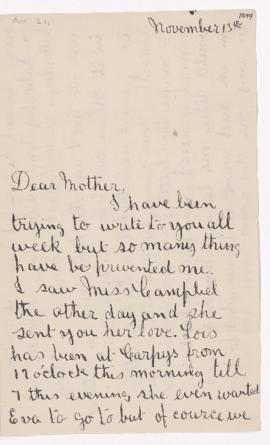 1899
November 13th
Dear Mother,
I have been
trying to write to you all
week but so many thing
have be prevented me.
I saw Miss Campbel
the other day and she
sent you her love. Lois
has been at Carpys from
1 oclock this morning till
7 this evening, she even wanted
Eva to go to but of cource we